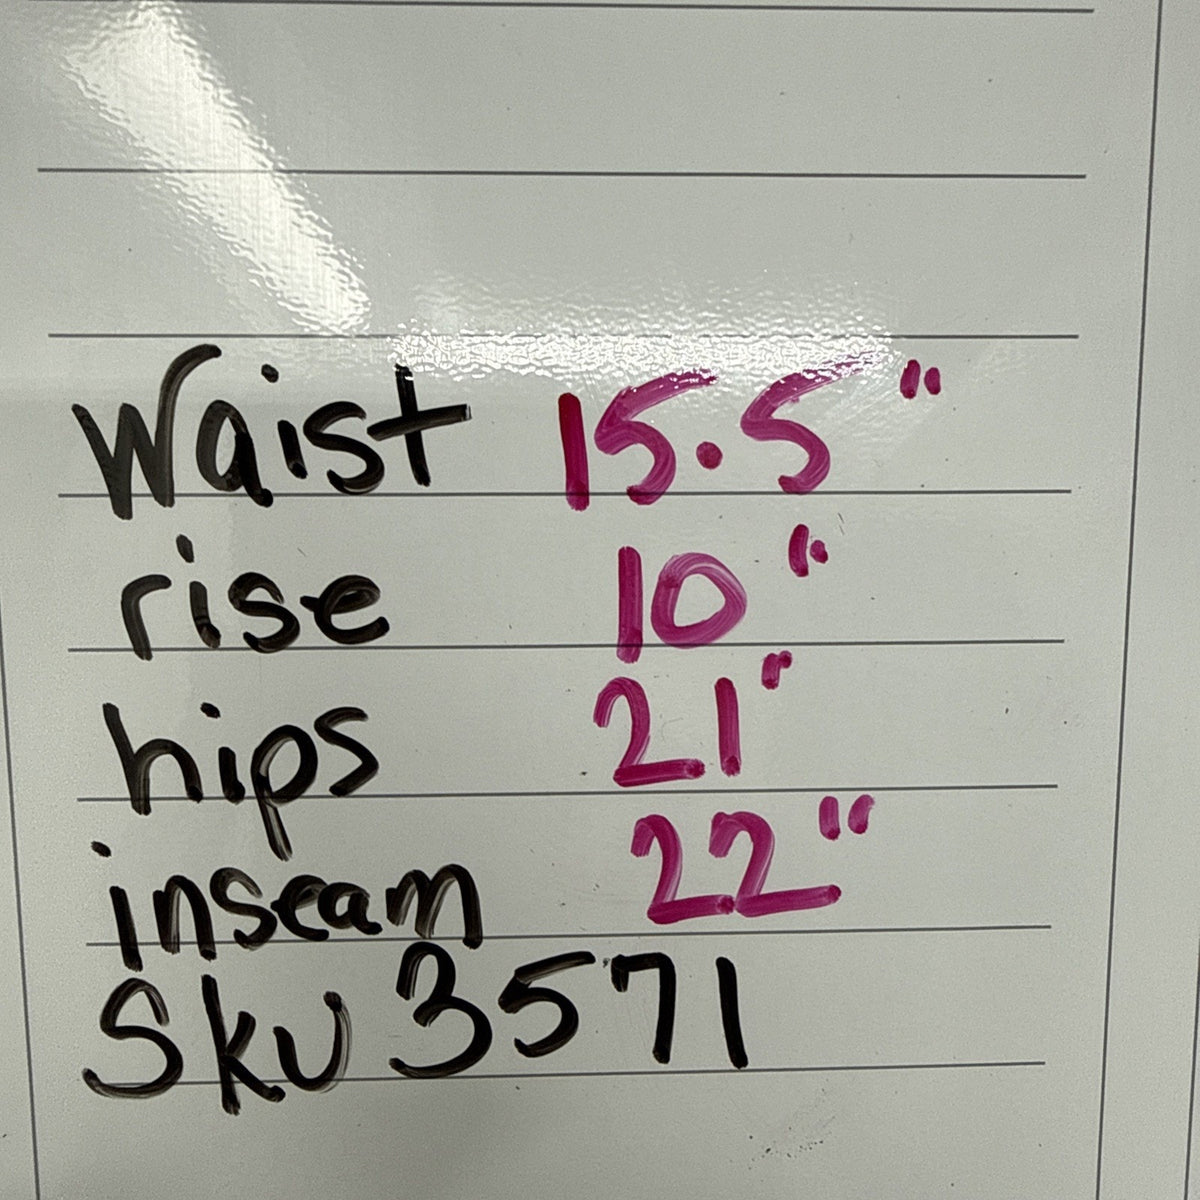 Waist 15.5"
rise 10"
hips 21"
inseam 22"
Sku 3571